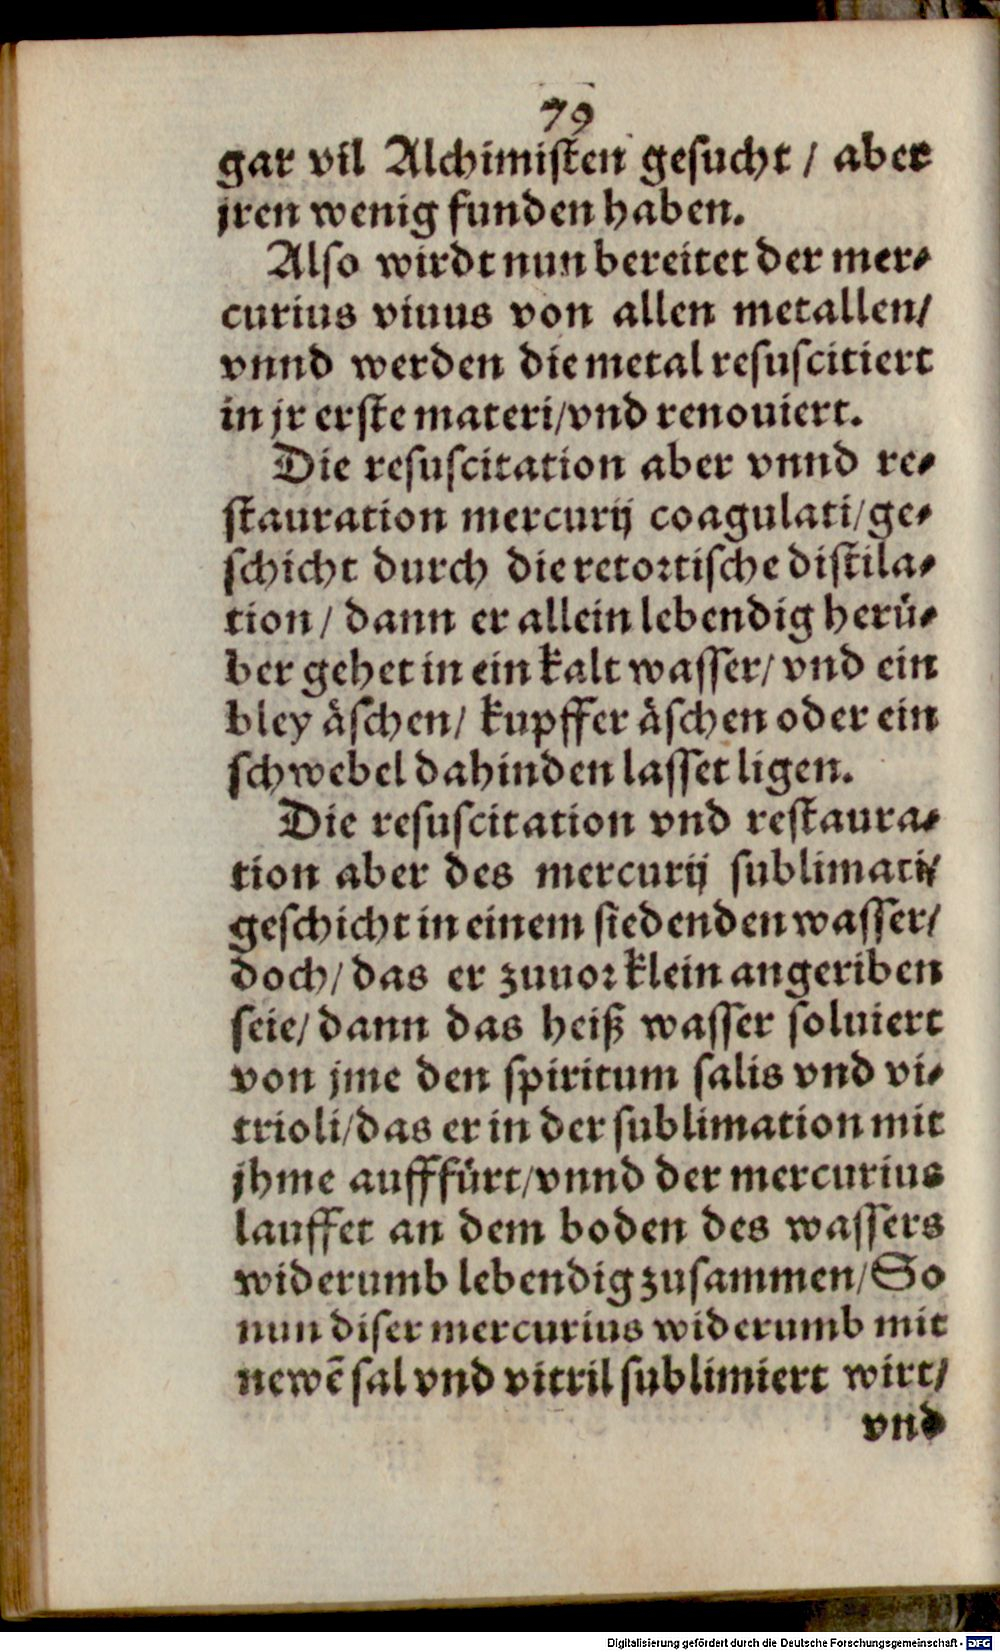 79
gar vil Alchimisten gesucht / aber
jren wenig funden haben.
Also wirdt nun bereitet der mer⸗
curius viuus von allen metallen/
vnnd werden die metal resuscitiert
in jr erste materi/vnd renouiert.
Die resuscitation aber vnnd re⸗
stauration mercurij coagulati/ge⸗
schicht durch die retortische distila⸗
tion/ dann er allein lebendig herü⸗
ber gehet in ein kalt wasser/ vnd ein
bley äschen/ kupffer äschen oder ein
schwebel dahinden lasset ligen.
Die resuscitation vnd restaura⸗
tion aber des mercurij sublimati/
geschicht in einem siedenden wasser/
doch/ das er zuuor klein angeriben
seie/ dann das heiß wasser soluiert
von jme den spiritum salis vnd vi⸗
trioli/das er in der sublimation mit
jhme aufffürt/vnnd der mercurius
lauffet an dem boden des wassers
widerumb lebendig zusammen/So
nun diser mercurius widerumb mit
newē sal vnd vitril sublimiert wirt/
vnd
Digitalisierung gefördert durch die Deutsche Forschungsgemeinschaft - DFG